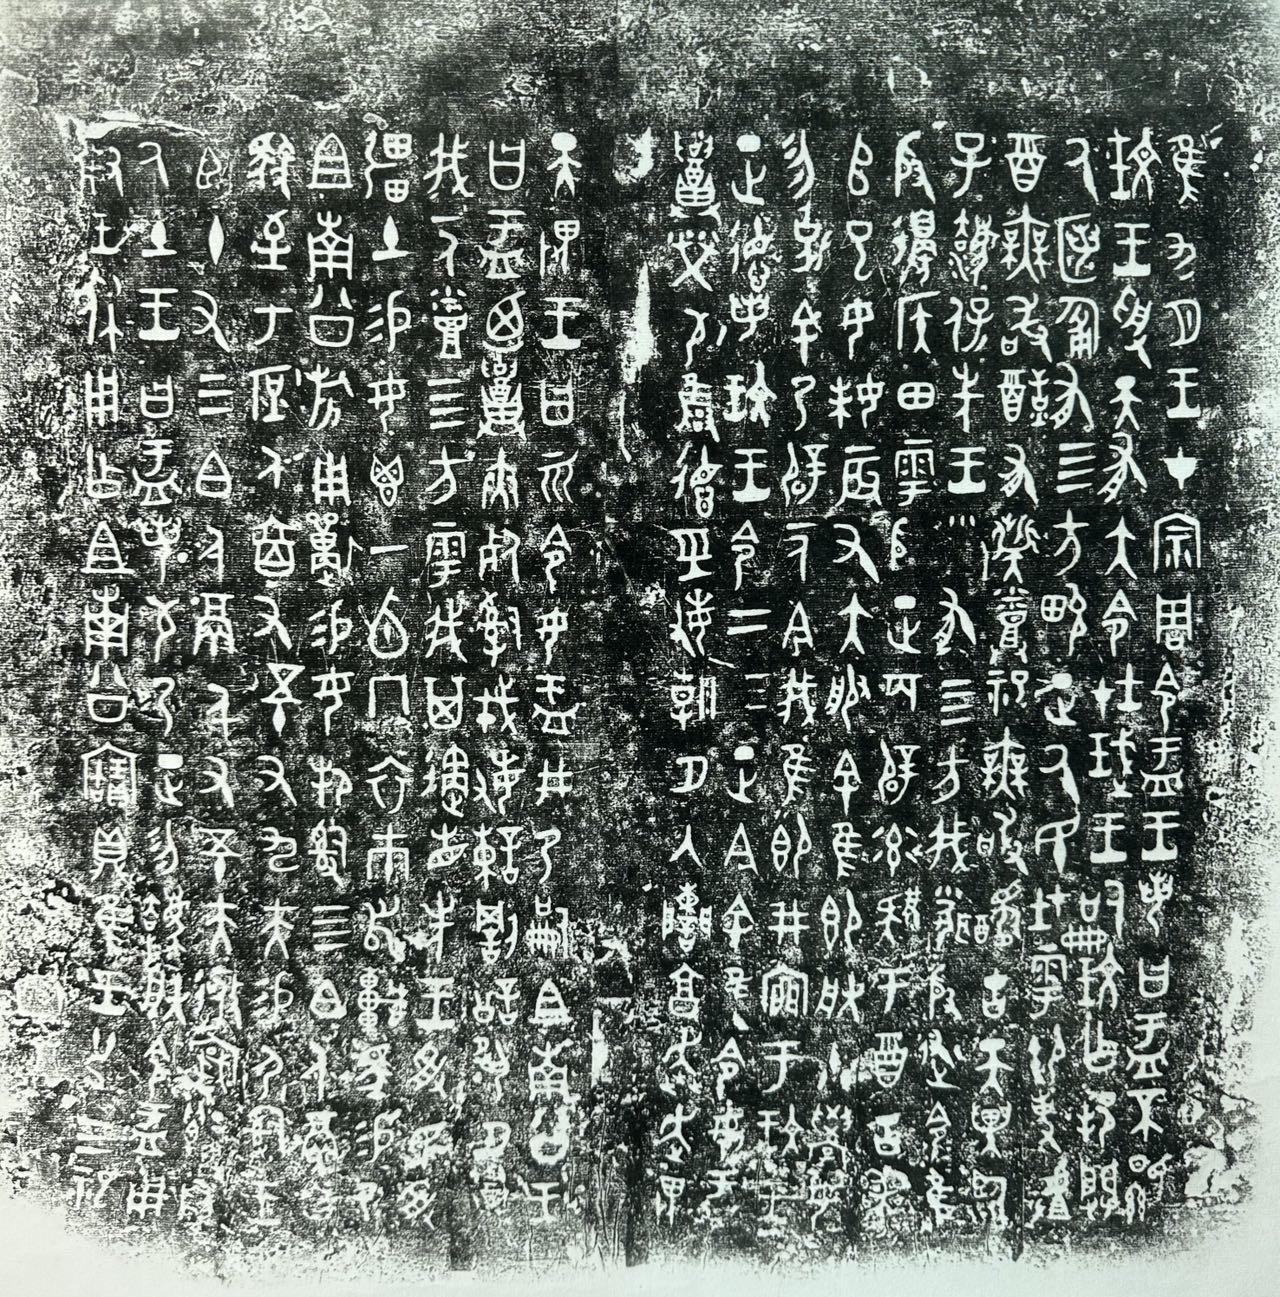 隹九月王才宗周令盂王若曰盂不顯
玟王受天有大令在珷王嗣玟乍邦闢
厥匿匍有四方畯正厥民在雩御事
酉無敢酖有柴烝祀無敢醻古天異臨
子灋保先王有四方我聞殷述令隹
殷邊侯田雩殷正百辟率肄于酉古喪
師巳女妹辰又大服余隹即朕小學女
勿剋余乃辟一人今我隹即井于玟王
正德若玟王令二三正今余隹令女盂
召榮敬雝德巠敏朝夕入讕享奔走畏
天畏王曰令女盂井乃嗣且南公王
曰盂廼召夾死司戎敏諫罰訟夙夕召
我一人烝四方雩我其遹省先王受民受
疆土易女鬯一卣冂衣巿舄車馬易乃
且南公旂用遘易女邦司四白人鬲自
馭至于庶人六百又五十又九夫易尸司王
臣十又三白人鬲千又五十夫遷自
厥土王曰盂若敬乃正勿灋朕令盂用
對王休用乍且南公寶鼎隹王廿又三祀